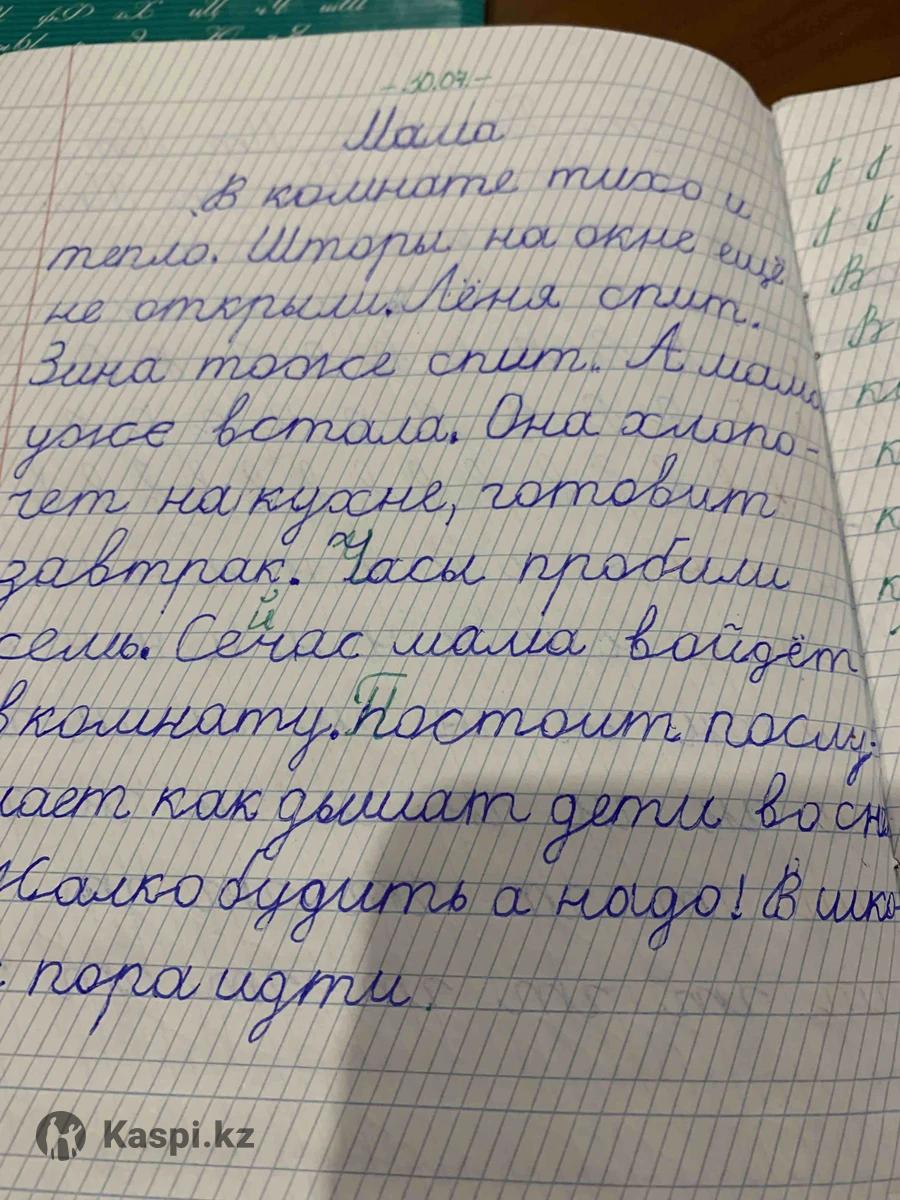 - 30.07. -
Мама
В комнате тихо и
тепло. Шторы на окне ещё
не открыли. Лёня спит.
Зина тоже спит. А мама
уже встала. Она хлопо-
чет на кухне, готовит
завтрак. Часы пробили
семь. Сейчас мама войдёт
в комнату. Постоит послу-
шает как дышат дети во сне
Жалко будить а надо! В шко-
пора идти.
Kaspi.kz